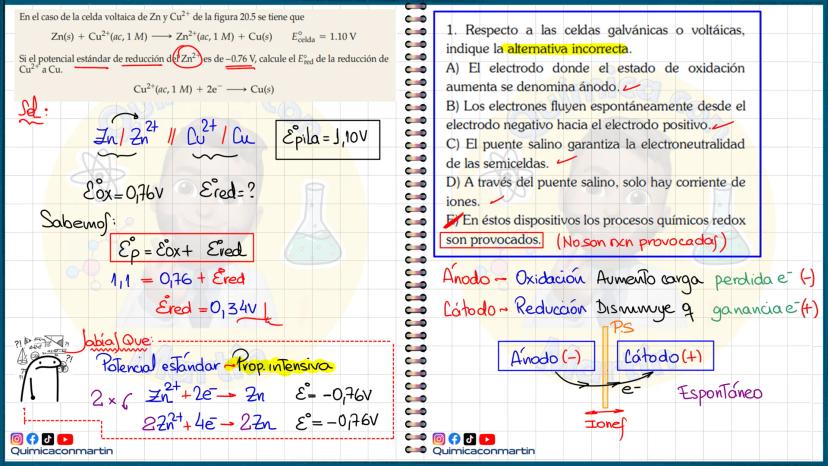 En el caso de la celda voltaica de Zn y Cu²⁺ de la figura 20.5 se tiene que
Zn(s) + Cu²⁺(ac, 1 M) ⟶ Zn²⁺(ac, 1 M) + Cu(s) E°celda = 1.10 V
Si el potencial estándar de reducción del Zn²⁺ es de −0.76 V, calcule el E°red de la reducción de
Cu²⁺ a Cu.
Cu²⁺(ac, 1 M) + 2e⁻ ⟶ Cu(s)
Sol:
Zn / Zn²⁺ // Cu²⁺ / Cu
E°pila = 1,10V
E°ox = 0,76V E°red = ?
Sabemos:
E°p = E°ox + E°red
1,1 = 0,76 + E°red
E°red = 0,34V
Sabías Que:
Potencial estándar → Prop. intensiva
2 × Zn²⁺ + 2e⁻ → Zn E° = −0,76V
2Zn²⁺ + 4e⁻ → 2Zn E° = −0,76V
Quimicaconmartin
1. Respecto a las celdas galvánicas o voltáicas,
indique la alternativa incorrecta.
A) El electrodo donde el estado de oxidación
aumenta se denomina ánodo.
B) Los electrones fluyen espontáneamente desde el
electrodo negativo hacia el electrodo positivo.
C) El puente salino garantiza la electroneutralidad
de las semiceldas.
D) A través del puente salino, solo hay corriente de
iones.
E) En éstos dispositivos los procesos químicos redox
son provocados. (No son rxn provocadas)
Ánodo – Oxidación Aumento carga perdida e⁻ (−)
Cátodo – Reducción Disminuye q ganancia e⁻ (+)
PS
Ánodo (−) Cátodo (+)
e⁻
Espontáneo
Iones
Quimicaconmartin